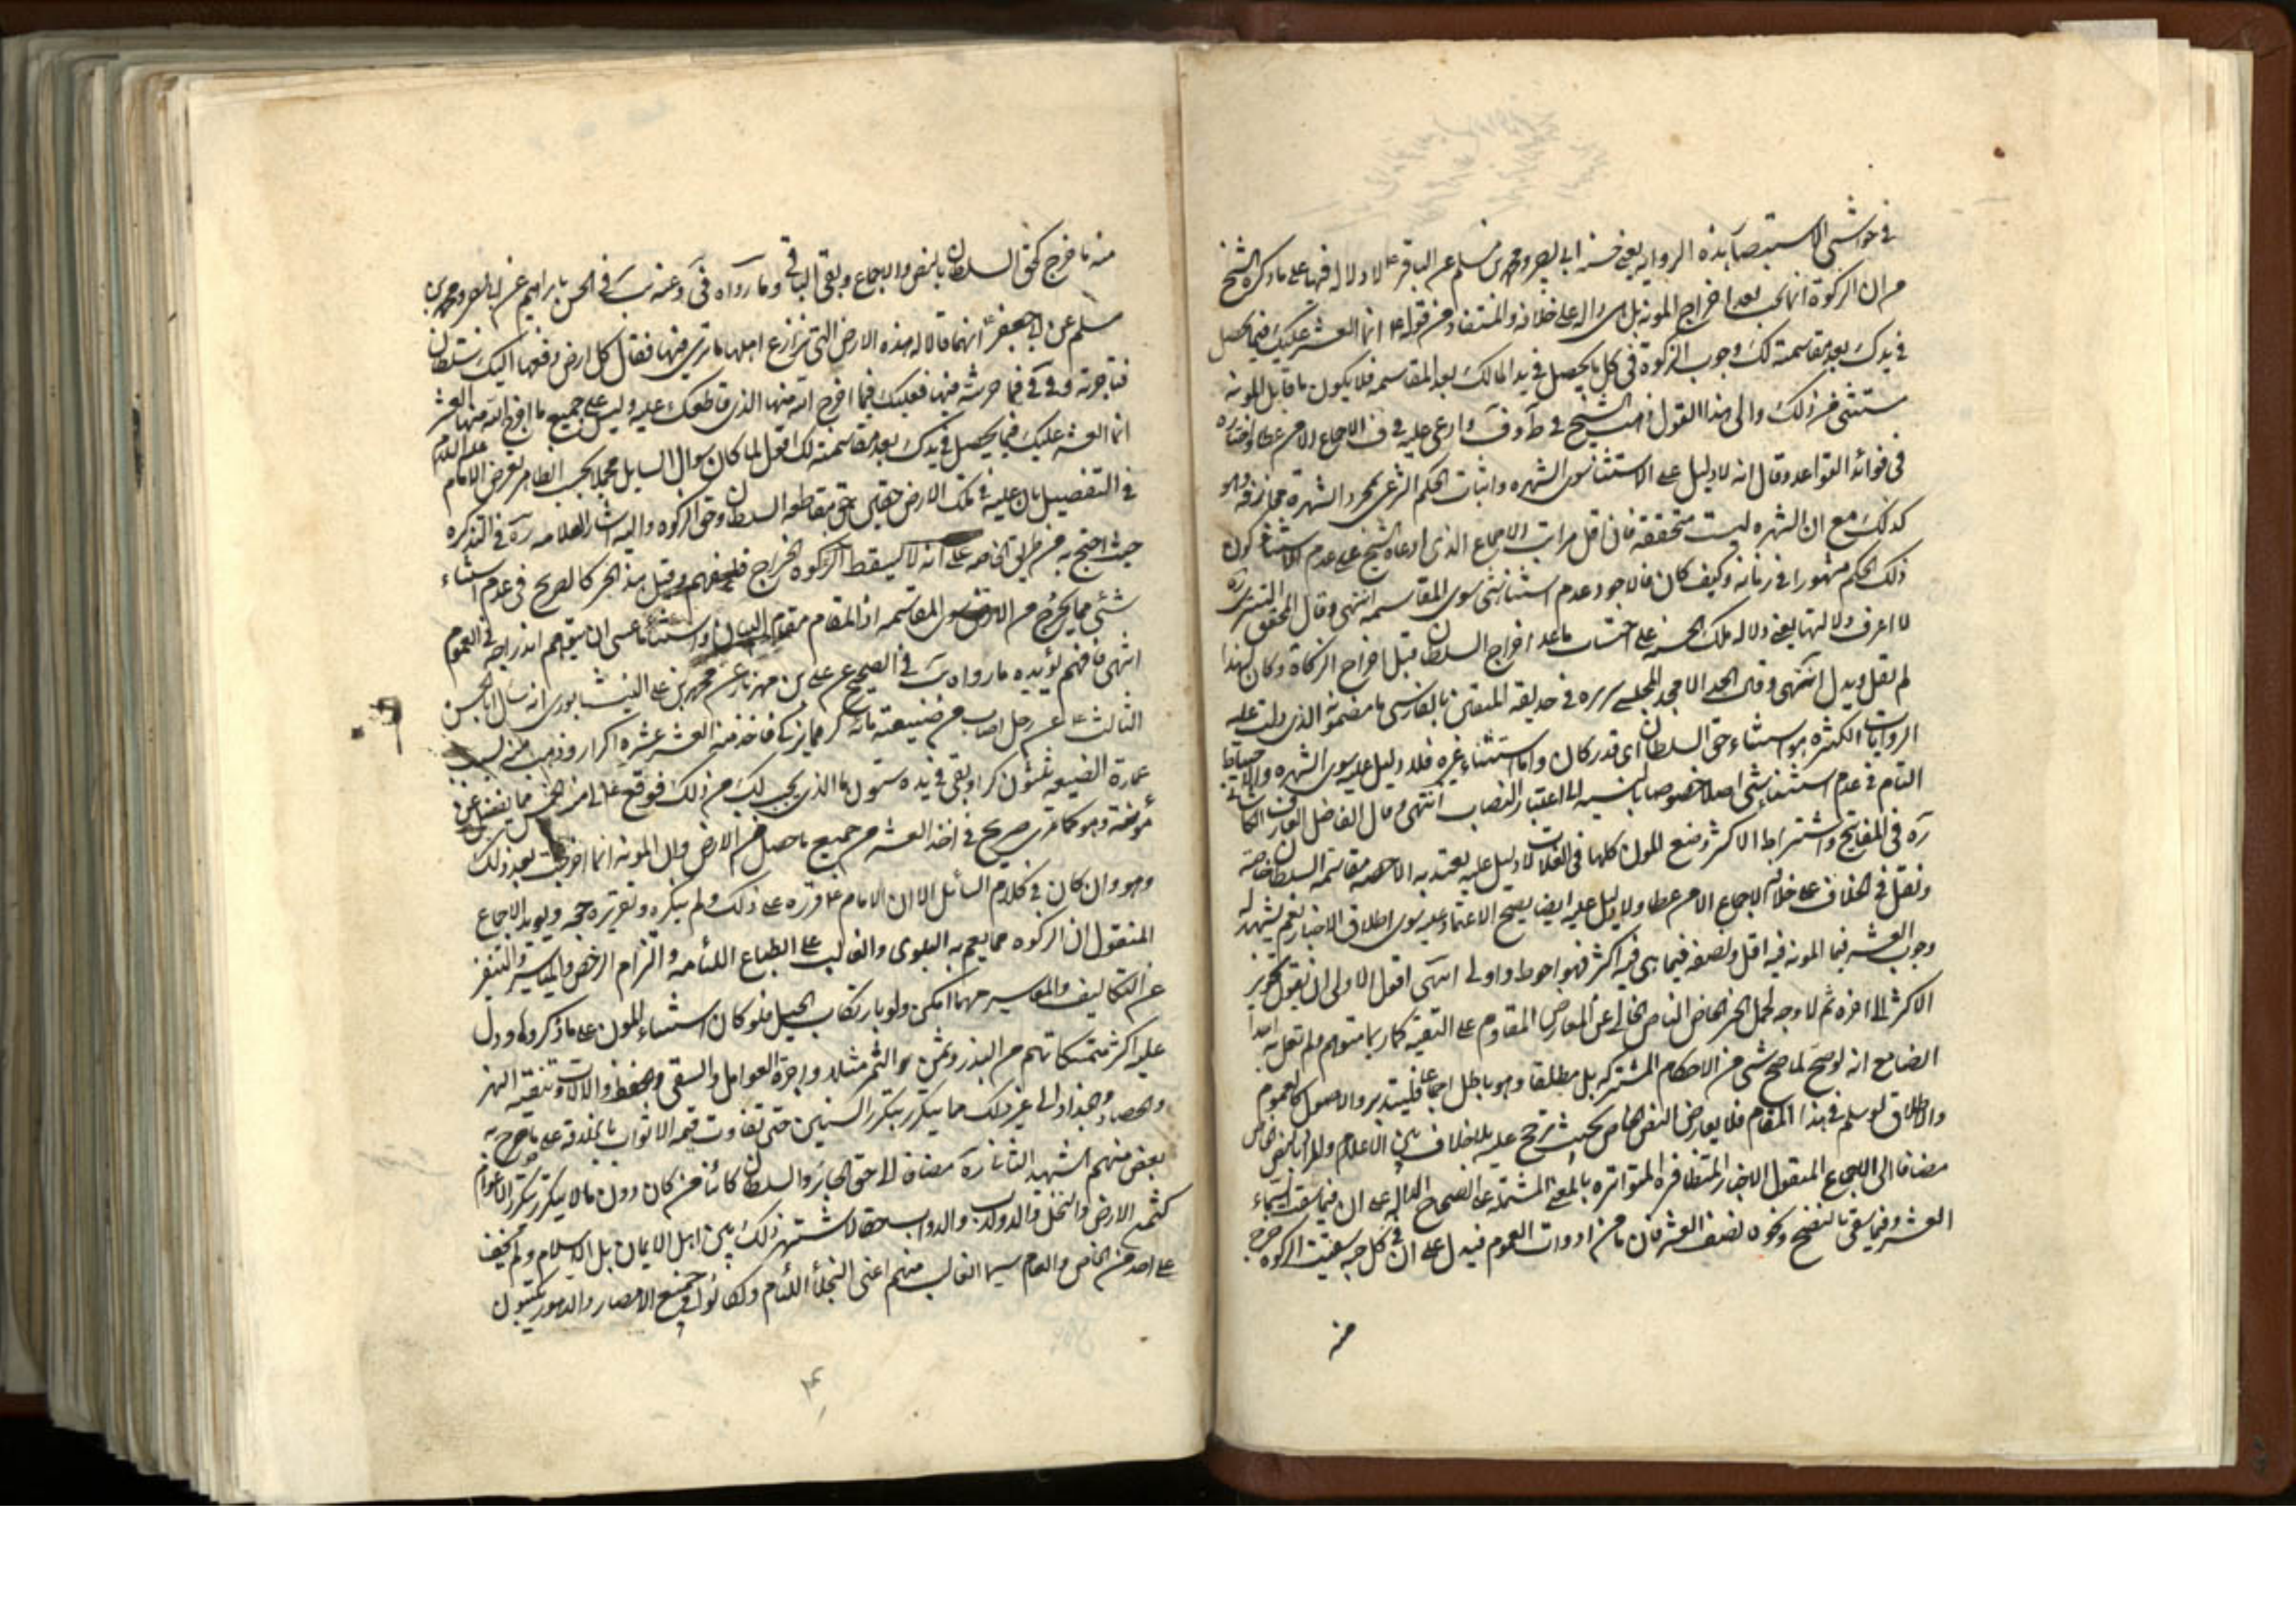 في حواشي الاستبصار هذه الرواية يعني حسنة ابي بصير ومحمد بن مسلم عن الباقر ع لا دلالة فيها على ما ذكره الشيخ
من ان الزكوة انما يجب بعد اخراج المونة بل هي دالة على خلافه والمستفاد من قوله ع انما العشر عليك فيما يحصل
في يدك بعد مقاسمته لك وجوب الزكوة في كل ما يحصل في يد المالك بعد المقاسمه فلا يكون ما قابل المونة
مستثنى من ذلك والى هذا القول ذهب الشيخ في ط وف وادعى عليه في ف الاجماع الا من عطا واختاره
في فوائد القواعد وقال انه لا دليل على الاستثنا سوى الشهره واثبات الحكم الشرعي بمجرد الشهرة مجازفة وهو
كذلك مع ان الشهره ليست متحققة فان اقل مراتب الاجماع الذي ادعاه الشيخ على عدم الاستثناء كون
ذلك الحكم مشهورا في زمانه وكيف كان فالاجود عدم استثنا شي سوى المقاسمه انتهى وقال المحقق التستري ره
لا اعرف دلالتها يعني دلالة تلك الخبر على احتساب ما عدا اخراج السلطان قبل اخراج الزكاة وكان لهذا
لم نقل ويدل انتهى وقال الامجد المجلسي سره في حديقة المتقين بالفارسي ما مضمونه الذي دلت عليه
الروايات الكثيره هو استثناء حق السلطان اى قدر كان واما استثناء غيره فلا دليل عليه سوى الشهره والاحتياط
التام في عدم استثناء شي اصلا خصوصا بالنسبه الى اعتبار النصاب انتهى وقال الفاضل العارف الكاشاني
ره في المفاتيح واشتراط الاكثر وضع المون كلها في الغلات لا دليل عليه يعتد به الا حصة مقاسمة السلطان خاصة
ونقل في الخلاف على خلافه الاجماع الا من عطا ولا دليل عليه ايضا يصح الاعتماد عليه سوى اطلاق الاخبار نعم يشهد له
وجوب العشر فيما المونة فيه اقل ونصفه فيما هي فيه اكثر فهو احوط واولى انتهى اقول الاولى ان يقول تجويز
الاكثر الى اخره ثم لا وجه لحمل الخبر الخاص الناص الخالي عن المعارض المقاوم على التقية كما ربما متوهم ولم تقل به احدا
الضايع انه لو صح لما صح شي من الاحكام المشتركه بل مطلقا وهو باطل اجماعا فليتدبر والاصول كالعموم
والاطلاق لو سلم في هذا المقام فلا يعارض النص الخاص بحيث ترجح عليه بلا خلاف بين الاعلام والنص الخاص
مضافا الى الاجماع المنقول الاخبار المتظافره المتواتره بالمعنى المشتمله على الصحاح الدالة على ان فيما سقت السماء
العشر وفيما سقي بالنضح ونحوه نصف العشر فان ما من ادوات العموم فيدل على ان في كل حبه سقيت الزكوة خرج
منه
منه ما خرج كحق السلطان بالنص والاجماع وبقي الباقي وما رواه في وعنه في الحسن بابراهيم عن ابي بصير ومحمد بن
مسلم عن ابي جعفر ع انهما قالا له هذه الارض التي تزارع اهلها ما ترى فيها فقال كل ارض دفعها اليك سلطان
فتاجرته فما حرثته فيها فعليك فيما اخرج الله منها الذي قاطعك عليه وليس على جميع ما اخرج الله منها العشر
انما العشر عليك فيما يحصل في يدك بعد مقاسمته لك اقول لما كان سوال السايل مجملا بحسب الظاهر تعرض الامام عليه السلام
في التفصيل بان عليه في تلك الارض حقين حق مقاطعه السلطان وحق الزكوه واليه اشار العلامه ره في التذكره
حيث احتج به من طريق الخاصه على انه لا يسقط الزكوه الخراج فليفهم وقيل هذا الخبر كالصريح في عدم استثناء
شئي مما يخرج من الارض سوى المقاسمه اذ المقام مقام البيان واستثناء ما عسى ان يتوهم اندراجه في العموم
انتهى فافهم يؤيده ما رواه في الصحيح عن علي بن مهزيار عن محمد بن علي النيشابوري انه سال ابا الحسن
الثالث ع عن رجل اصاب من ضيعته مائة كر مما يزكى فاخذ منه العشر عشره اكرار وذهب منه بسبب
عمارة الضيعه ثلثون كرا وبقي في يده ستون ما الذي يجب لك من ذلك فوقع ع لي منه الخمس مما يفضل عن
مؤنته وهو كما ترى صريح في اخذ العشر من جميع ما حصل من الارض وان المونة انما اخرجت بعد ذلك
وهو وان كان في كلام السائل الا ان الامام ع قرره على ذلك ولم ينكره وتقريره حجه ويويد الاجماع
المنقول ان الزكوه مما يعم به البلوى والغالب على الطباع اللئامه والتزام الرخص والمياسير والتنفر
عن التكاليف والمعاسير مهما امكن ولو بارتكاب الحيل فلو كان استثناء المون على ما ذكروه ودل
عليه اكثر متمسكاتهم من البذر وثمن الثمر مثلا واجرة العوامل والسقي والحفظ والالات وتنقية النهر
والحصاد والجذاذ الى غير ذلك مما يتكرر بتكرر السنين حتى تفاوت قيمه الاثواب بالخلاقة على ما صرح به
بعض منهم الشهيد الثاني ره مضافا الى حق الجائر والسلطان كائنا من كان دون ما لا يتكرر بتكرر الاعوام
كثمن الارض والنخل والدولاب والدواب حقا لاشتهر ذلك بين اهل الايمان بل الاسلام ولم يخف
على احد من الخاص والعام سيما الغالب منهم اعني البخلاء اللئام ولكانوا في جميع الامصار والدهور يكتبون